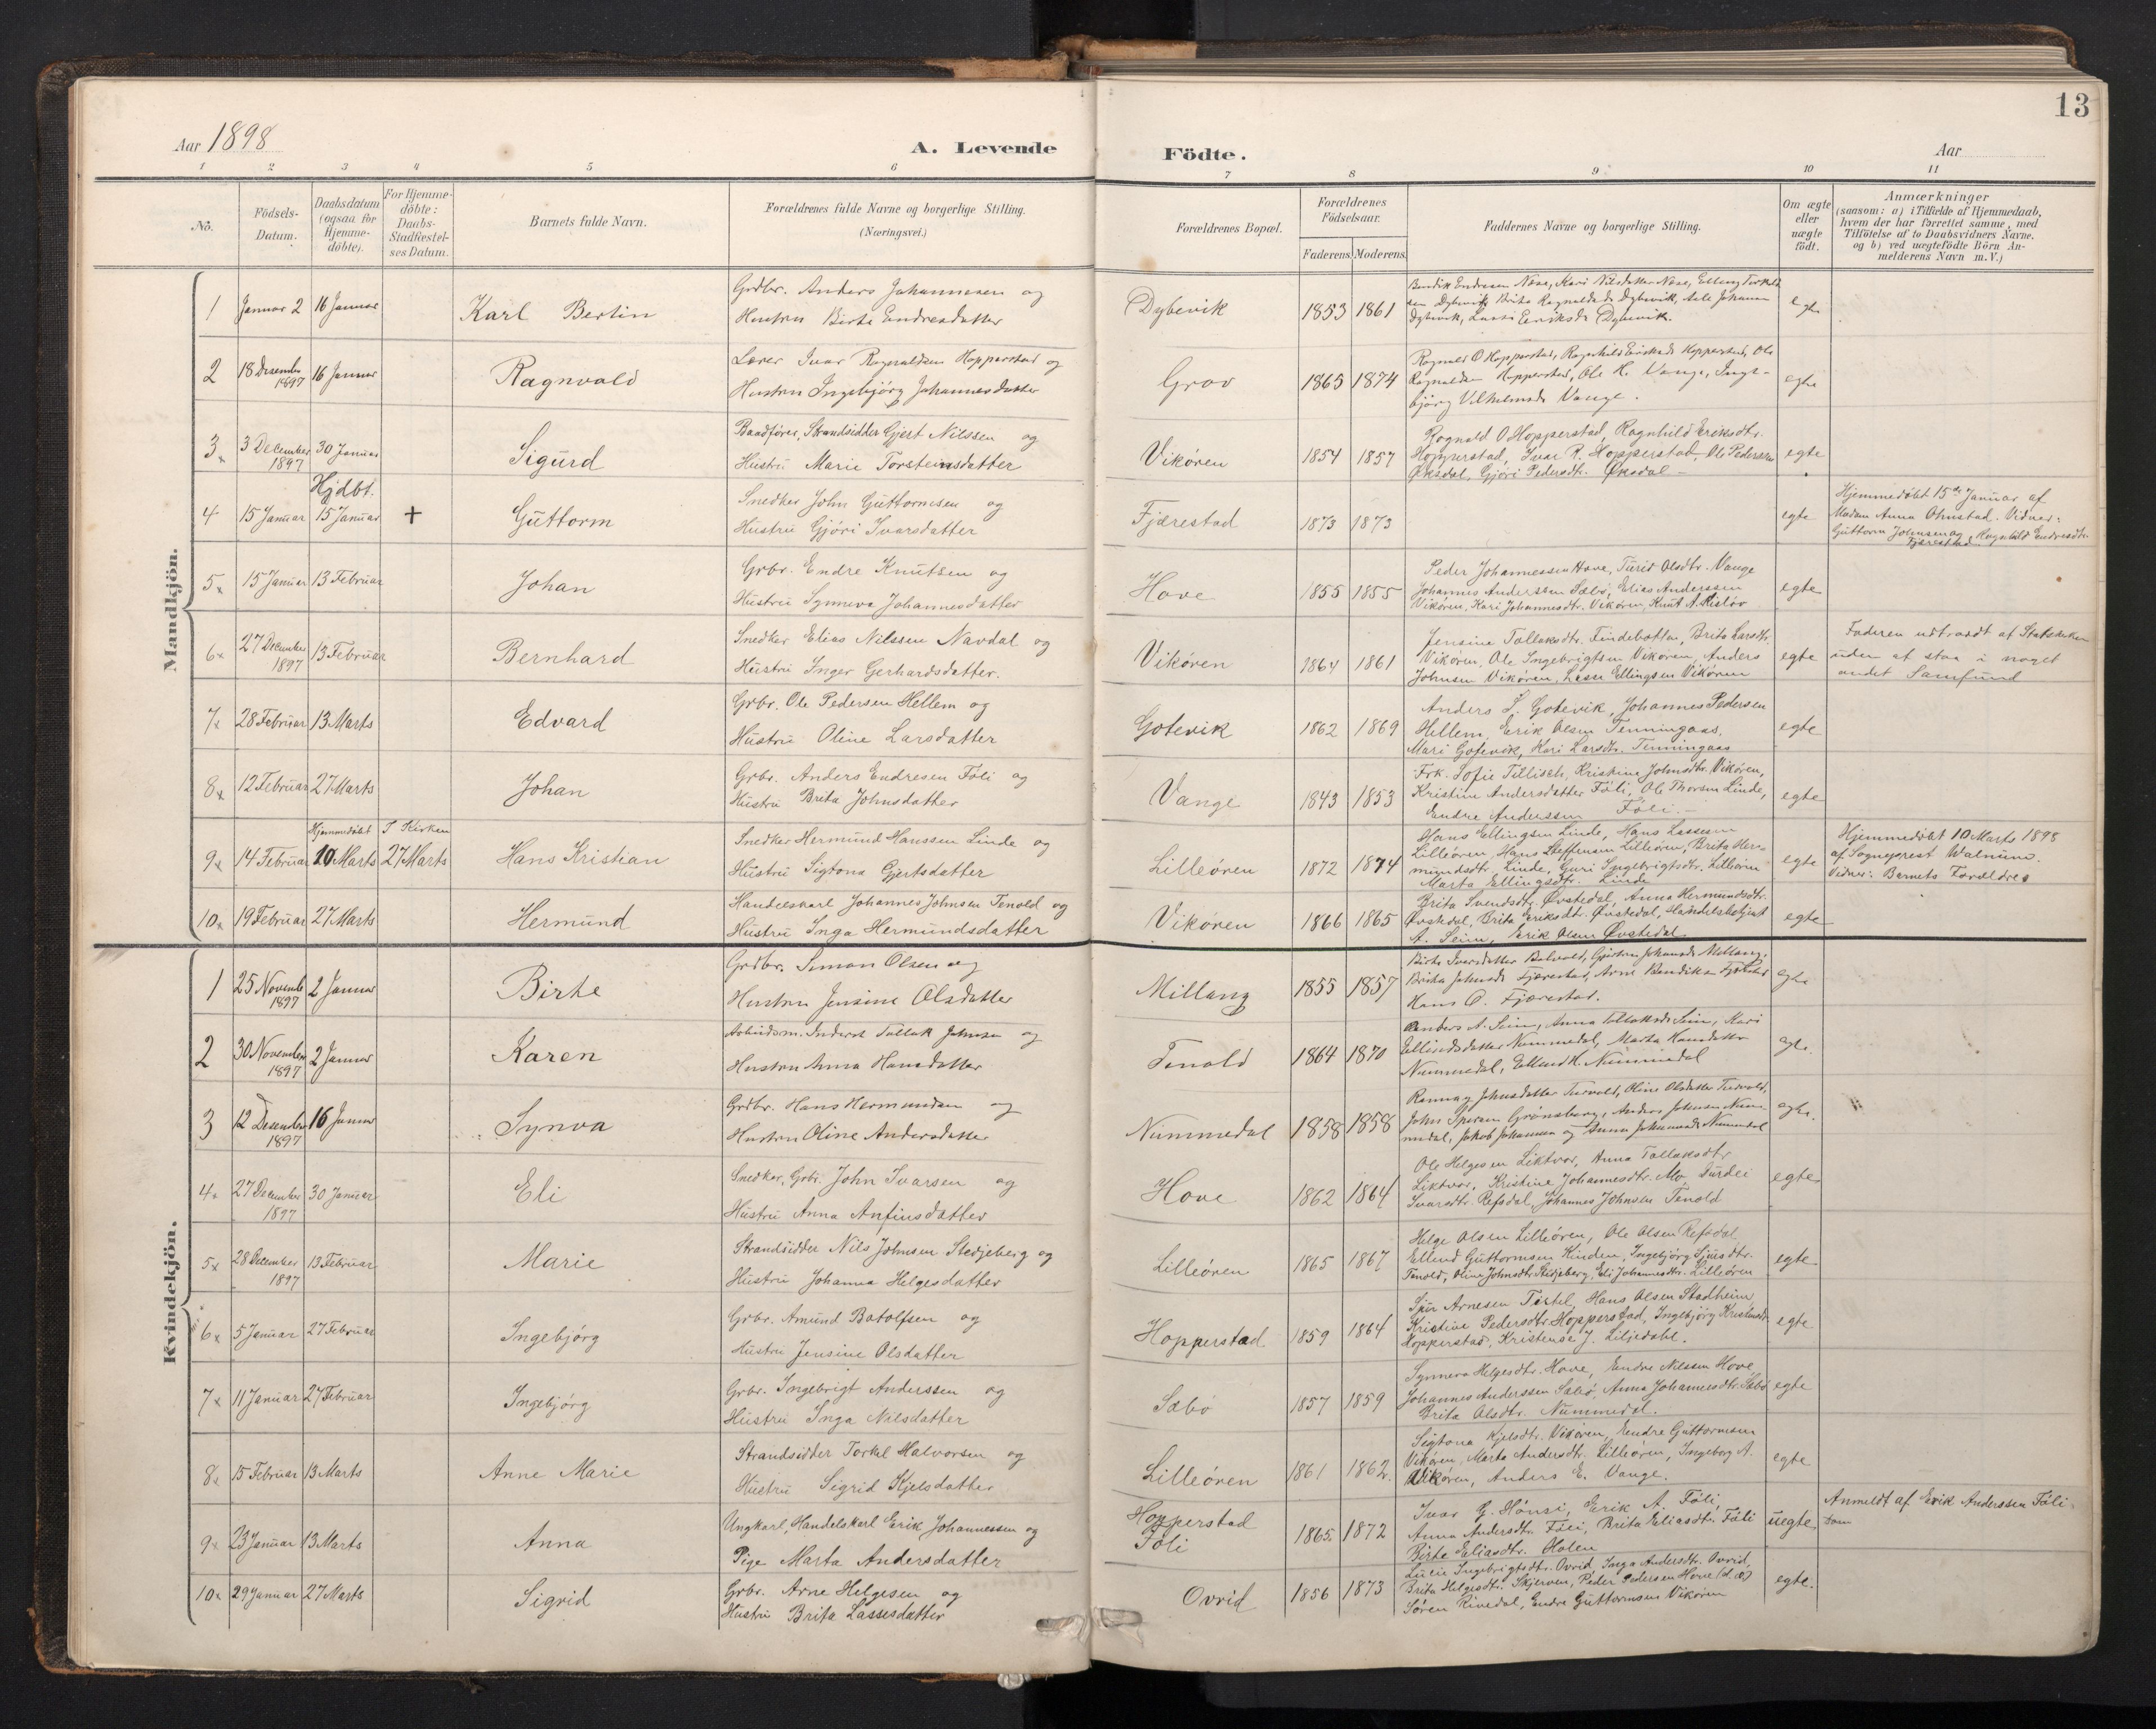 13
Aar 1898
A. Levende Födte.
Aar
1 2 3 4 5 6 7 8 9 10 11
No.
Födsels-
Datum.
Daabsdatum
(ogsaa for
Hjemme-
döbte).
For Hjemme-
döbte:
Daabs-
Stadfæstel-
ses Datum.
Barnets fulde Navn.
Forældrenes fulde Navne og borgerlige Stilling.
(Næringsvei.)
Forældrenes Bopæl.
Forældrenes
Födselsaar.
Faderens. Moderens.
Faddernes Navne og borgerlige Stilling.
Om ægte
eller
uægte
födt.
Anmærkninger
(saasom: a) i Tilfælde af Hjemmedaab,
hvem der har forrettet samme, med
Tilföielse af to Daabsvidners Navne.
og b) ved uægtefödte Börn An-
melderens Navn m. V.)
Mandkjön.
1 Januar 2 16 Januar Karl Bertin
Grdbr. Anders Johannesen og
Hustru Birte Endresdatter
Dybevik 1853 1861
egte
2 18 Desember 1897 16 Januar Ragnvald
Lærer Ivar Ragnaldsen Hopperstad og
Hustru Ingebjörg Johannesdatter
Grov 1865 1874
Ragnald O Hopperstad, Ragnhild Eriksdt Hopperstad, Ole
Ragnaldsen Hopperstad, Ole H. Vange, Inge-
björg Vilhelmsdt Vange.
egte
3x 3 December 1897 30 Januar Sigurd
Baadfører, Strandsidder Gjert Nilssen og
Hustru Marie Torsteinsdatter
Vikören 1854 1857
Ragnald O Hopperstad, Ragnhild Eriksdtr.
Hopperstad, Ivar R. Hopperstad, Ole Pedersen
Öksdal, Gjöri Pedersdt. Øksdal –
egte
4 15 Januar Hjdbt. 15 Januar + Guttorm
Snedker John Guttormsen og
Hustru Gjöri Ivarsdatter
Fjærestad 1873 1873
egte
Hjemmedöbt 15de Januar af
Madam Anna Ohnstad. Vidner:
Guttorm Johnsen og Ragnhild Endresdtr.
Fjærestad
5x 15 Januar 13 Februar Johan
Grbr. Endre Knutsen og
Hustru Synneva Johannesdatter
Hove 1855 1855
Peder Johannessen Hove, Turid Olsdtr. Vange
Johannes Anderssen Sæbö, Elias Anderssen
Vikören, Kari Johannesdtr. Vikören, Knut A. Rislöv
egte
6x 27 December 1897 13 Februar Bernhard
Snedker Elias Nilssen Navdal og
Hustru Inger Gerhardsdatter.
Vikören 1864 1861
Jensine Tollaksdtr. Findebotten, Brita Larsdtr.
Vikören, Ole Ingebrigtsen Vikören, Anders
Johnsen Vikören, Lasse Ellingsen Vikören
egte
Faderen udtraadt af Statskirken
uden at staa i noget
andet Samfund
7x 28 Februar 13 Marts Edvard
Grbr. Ole Pedersen Hellem og
Hustru Oline Larsdatter
Gotevik 1862 1869
Anders L. Gotevik, Johannes Pedersen
Hellem, Erik Olsen Tenningaas,
Mari Gotevik, Kari Larsdtr. Tenningaas
egte
8x 12 Februar 27 Marts Johan
Grbr. Anders Endresen Föli og
Hustru Brita Johnsdatter
Vange 1843 1853
Frk. Sofie Tillisch, Kristine Johnsdtr. Vikören,
Kristine Andersdatter Föli, Ole Thorsen Linde,
Endre Anderssen Föli. –
egte
9x 14 Februar Hjemmedöbt 10 Marts I Kirken 27 Marts Hans Kristian
Snedker Hermund Hanssen Linde og
Hustru Sigtona Gjertsdatter
Lilleören 1872 1874
Hans Ellingsen Linde, Hans Lassesen
Lilleören, Hans Steffensen Lilleören, Brita Her-
mundsdtr. Linde, Guri Ingebrigtsdtr. Lilleören
Marta Ellingsdtr. Linde
egte
Hjemmedöbt 10 Marts 1898
af Sogneprest Walnum.
Vidner: Barnets Forældre
10x 19 Februar 27 Marts Hermund
Handelskarl Johannes Johnsen Tenold og
Hustru Inga Hermundsdatter
Vikören 1866 1865
Brita Svendsdtr. Øvstedal, Anna Hermundsdtr.
Øvstedal, Brita Eriksdt. Øvstedal, Handelsbetjent
A. Seim, Erik Olsen Øvstedal
egte
Kvindekjön.
1 25 November 1897 2 Januar Birte
Grdbr. Simon Olsen og
Hustru Jensine Olsdatter
Millang 1855 1857
Hans O. Fjærestad.
egte
2 30 November 1897 2 Januar Karen
Arbeidsm. Inderst Tollak Johnsen og
Hustru Anna Hansdatter
Tenold 1864 1870
Anders A. Seim, Anna Tollaksdt Seim, Kari
Ellendsdatter Nummedal, Marta Hansdatter
Nummedal, Ellend H. Nummedal
egte.
3 12 Desember 1897 16 Januar Synva
Grdbr. Hans Hermundsen og
Hustru Oline Andersdatter
Nummedal 1858 1858
egte.
4x 27 December 1897 30 Januar Eli
Snedker, Grbr. John Ivarsen og
Hustru Anna Anfinsdatter
Hove 1862 1864
Ole Helgesen Liktvor, Anna Tollaksdtr
Liktvor, Kristine Johannesdtr. Mo, Durdei
Ivarsdtr. Refsdal, Johannes Johnsen Tenold
egte
5x 28 December 1897 13 Februar Marie
Strandsidder Nils Johnsen Stedjeberg og
Hustru Johanna Helgesdatter
Lilleören 1865 1867
Helge Olsen Lilleören, Ole Olsen Refsdal,
Ellend Guttormsen Kinden, Ingebjörg Sjursdtr.
Tenold, Oline Johnsdtr Stedjeberg, Eli Johannesdtr. Lilleören
egte
6x 5 Januar 27 Februar Ingebjörg
Grbr. Amund Botolfsen og
Hustru Jensine Olsdatter
Hopperstad 1859 1864
Sjur Arnesen Tistel, Hans Olsen Stadheim,
Kristine Pedersdtr Hopperstad, Ingebjörg Kristensdt
Hopperstad, Kristense J. Liljedahl.
egte
7x 11 Januar 27 Februar Ingebjörg
Grbr. Ingebrigt Anderssen og
Hustru Inga Nilsdatter
Sæbö 1857 1859
Synneva Helgesdtr. Hove, Endre Nilssen Hove
Johannes Anderssen Sæbö, Anna Johannesdtr. Sæbö
Brita Olsdtr. Nummedal.
egte
8x 15 Februar 13 Marts Anne Marie
Strandsidder Torkel Halvorsen og
Hustru Sigrid Kjelsdatter
Lilleören 1861 1862.
Sigtona Kjelsdtr. Vikören, Endre Guttormsen
Vikören, Marta Andersdtr. Lilleören, Ingeborg A.
Vikören, Anders E. Vange.
egte
9x 23 Januar 13 Marts Anna
Ungkarl, Handelskarl Erik Johannessen og
Pige Marta Andersdatter
Hopperstad
Föli
1865. 1872
Ivar G. Hönsi, Erik A. Föli,
Anna Andersdtr. Föli, Brita Eliasdtr. Föli
Birte Eliasdtr. Holen
uegte
Anmeldt af Erik Anderssen Föli
10x 29 Januar 27 Marts Sigrid
Grbr. Arne Helgesen og
Hustru Brita Lassesdatter
Ovrid 1856 1873
Lucie Ingebrigtsdtr. Ovrid, Inga Andersdtr. Ovrid,
Brita Helgesdtr. Skjerven, Peder Pedersen Hove (d.æ)
Sören Rivedal, Endre Guttormsen Vikören
egte.